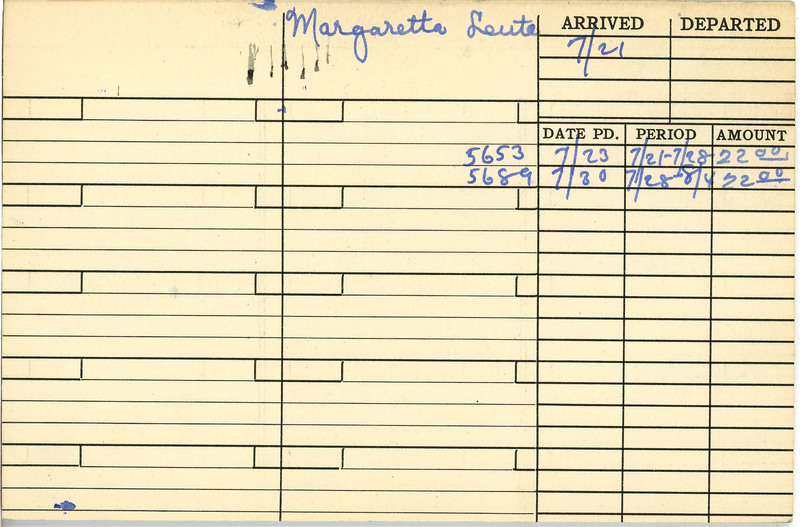 Margaretta Leute
ARRIVED DEPARTED
7/21
DATE PD. PERIOD AMOUNT
5653 7/23 7/21-7/28 22 00
5689 7/30 7/28-8/4 22 00